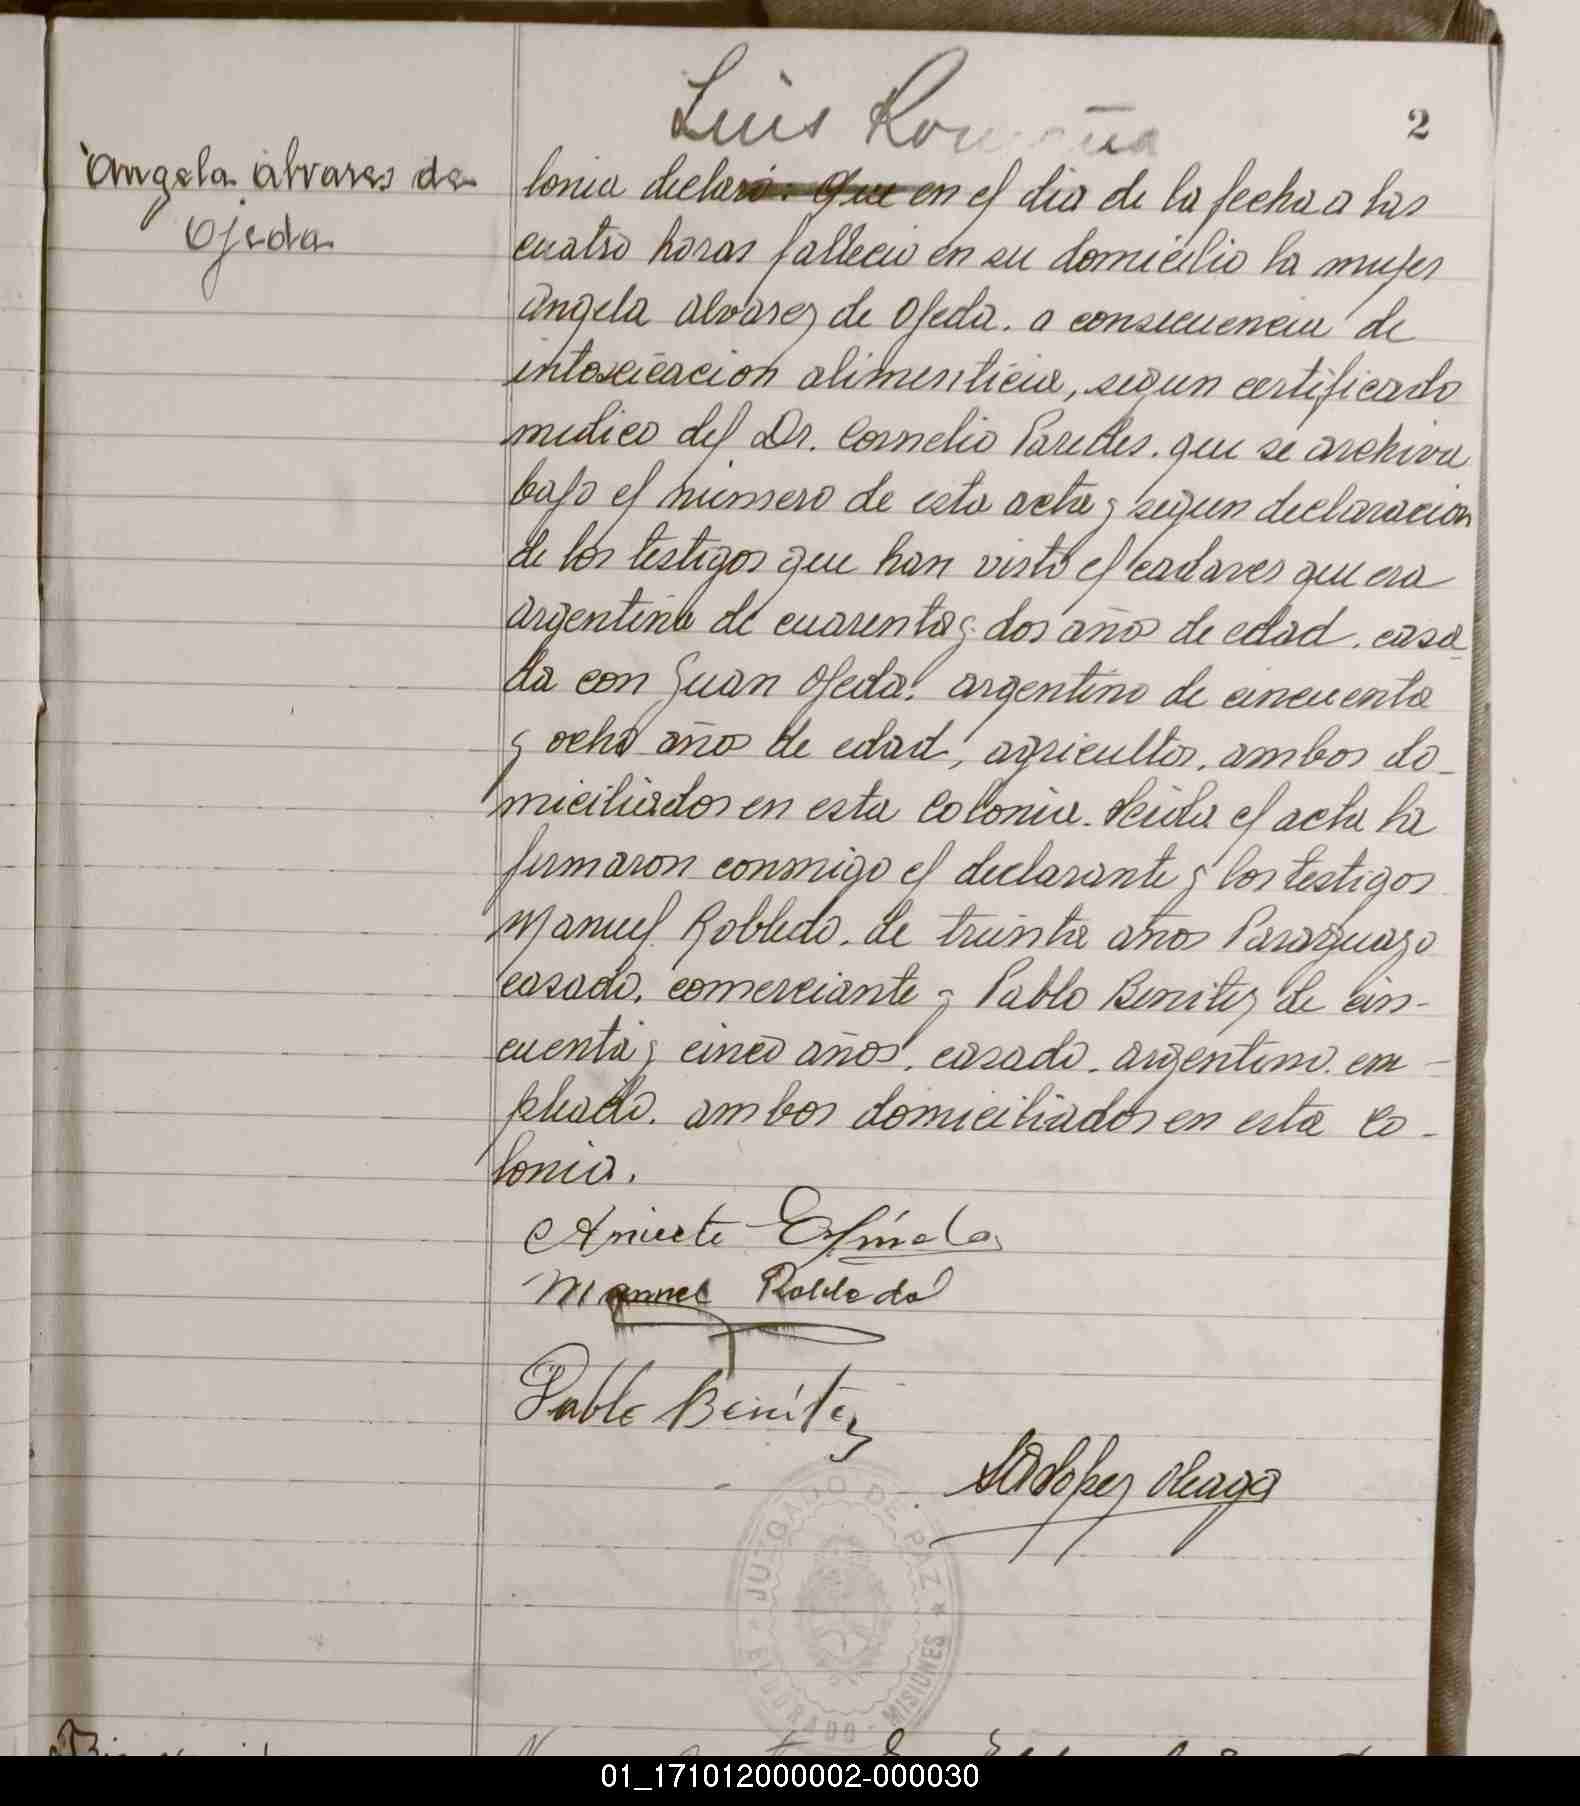 Luis Romaña
2
Angela Alvares de
Ojeda
lonia declaro: que en el dia de la fecha a las
cuatro horas fallecio en su domicilio la mujer
Angela Alvarez de Ojeda. a consecuencia de
intoxicacion alimenticia, segun certificado
medico del Dr. Cornelio Paredes. que se archiva
bajo el numero de esta acta y segun declaracion
de los testigos que han visto el cadaver que era
argentina de cuarenta y dos años de edad. casa
da con Juan Ojeda. argentino de cincuenta
y ocho años de edad, agricultor. ambos do-
miciliados en esta Colonia. Leida el acta la
firmaron conmigo el declarante y los testigos
Manuel Robledo. de treinta años Paraguayo
casado. comerciante y Pablo Benitez de cin-
cuenta y cinco años. casado. argentino. em-
pleado. ambos domiciliados en esta Co-
lonia.
Aniceto Espínola
Manuel Robledo
Pablo Benítez
Lopez
JUZGADO DE PAZ ★ ELDORADO - MISIONES ★
01_171012000002-000030